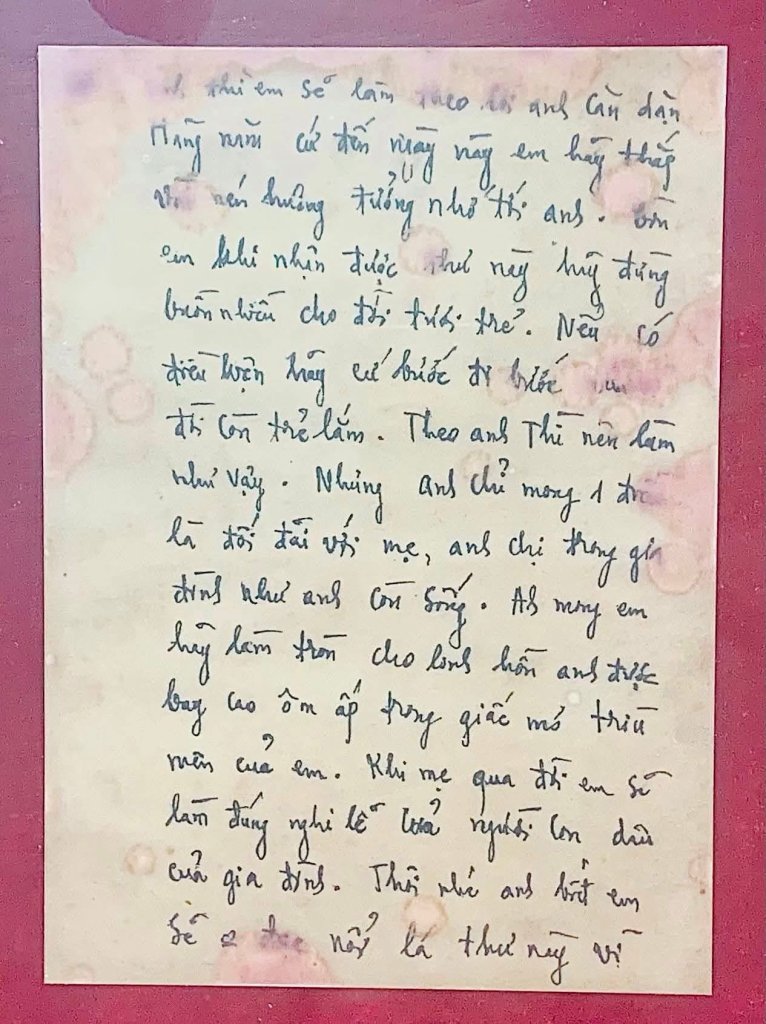 thì em sẽ làm theo lời anh căn dặn
Hàng năm cứ đến ngày này em hãy thắp
vài nén hương tưởng nhớ tới anh. Còn
em khi nhận được thư này hãy đừng
buồn nhiều cho đời tươi trẻ. Nếu có
điều kiện hãy cứ bước đi bước
đời còn trẻ lắm. Theo anh Thì nên làm
như vậy. Nhưng anh chỉ mong 1
là đối đãi với mẹ, anh chị trong gia
đình như anh còn sống. Ah mong em
hãy làm tròn cho linh hồn anh được
bay cao ôm ấp trong giấc mơ triù
mến của em. Khi mẹ qua đời em sẽ
làm đúng nghi lễ của người con dâu
của gia đình. Thôi nhé anh biết em
sẽ nổi lá thư này vì